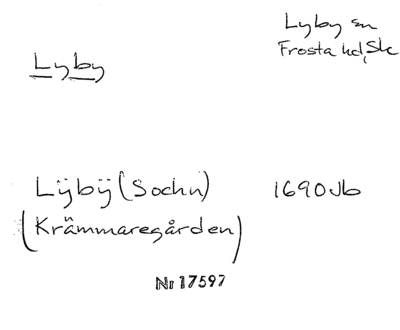 Lyby sn
Frosta hd, Sk
Lyby
Lÿbÿ (Sochn) 1690 Jb
(Krämmaregården)
Nr 17597